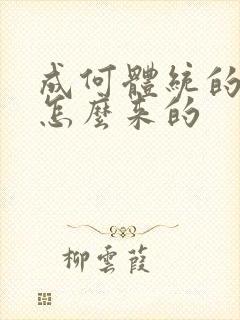 成何體統的
怎麼來的
柳雲葭